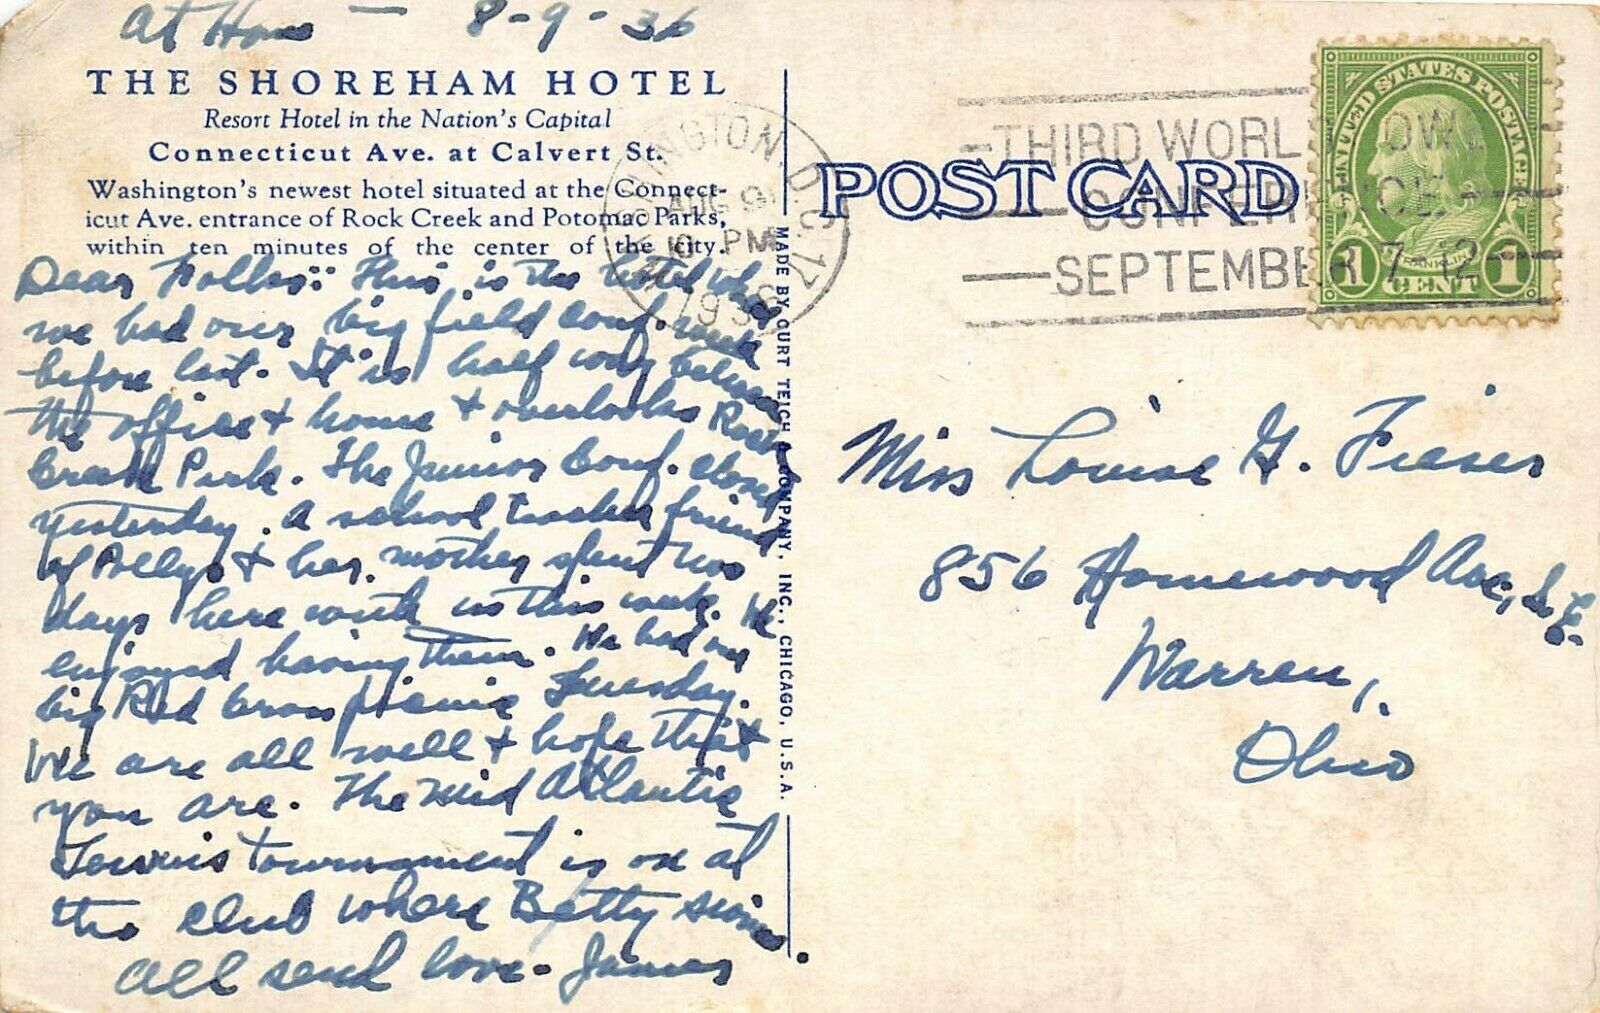 At Home - 8-9-36
THE SHOREHAM HOTEL
Resort Hotel in the Nation's Capital
Connecticut Ave. at Calvert St.
Washington's newest hotel situated at the Connect-
icut Ave. entrance of Rock Creek and Potomac Parks,
within ten minutes of the center of the city.
Dear Folks: This is the hotel where
we had our big field conf. week
before last. It is half way between
the office + home + overlooks Rock
Creek Park. The Junior Conf. closed
yesterday. A school teacher friend
of Polly's + her mother spent two
days here with us this week. We
enjoyed having them. We had our
big Red Cross picnic Tuesday.
We are all well + hope that
you are. The Mid Atlantic
Tennis tournament is on at
the club where Betty swims.
All send love - James
MADE BY CURT TEICH & COMPANY, INC., CHICAGO, U.S.A.
POST CARD
WASHINGTON, D.C. 17
AUG 9
10 PM
1936
THIRD WORLD POWER
CONFERENCE
SEPTEMBER 7-12
UNITED STATES POSTAGE
FRANKLIN
1 CENT 1
Miss Louise G. Fieser
856 Homewood Ave., S.E.
Warren,
Ohio